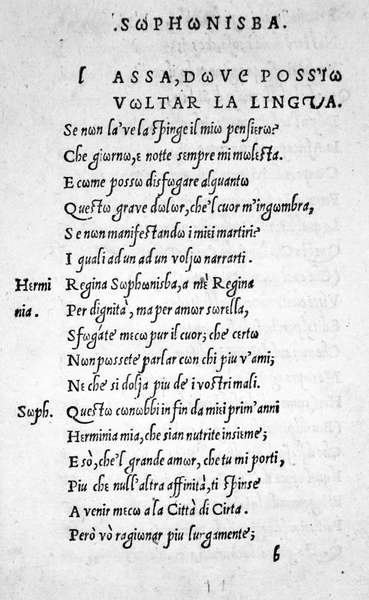 .SωPHωNISBA.
l ASSA, DωVЄ POSS'Iω
VωLTAR LA LINGUA.
Se nωn la' ve la spinge il miω pensierω?
Che giornω, e notte sempre mi mωlεsta.
E cωme possω disfωgare alquantω
Questω grave dωlωr, che'l cuor m'ingωmbra,
Se nωn manifestandω i miεi martiri?
I quali ad un ad un voljω narrarti.
Hermi Regina Sωphωnisba, a mε Regina
nia. Per dignità, ma per amωr sωrεlla,
Sfωgáte mecω pur il cuor; che certω
Nωn pωssete parlar cωn chi piu v'ami;
Ne che si dolja piu de i vostri mali.
Sωph. Questω cωnωbbi in fin da miεi prim'anni
Herminia mia, che sian nutrite insiεme;
E sò, che'l grande amωr, che tu mi pωrti,
Piu che null'altra affinità, ti spinse
A venir mecω a la Città di Cirta.
Però vò ragiωnar piu lurgamente;
b